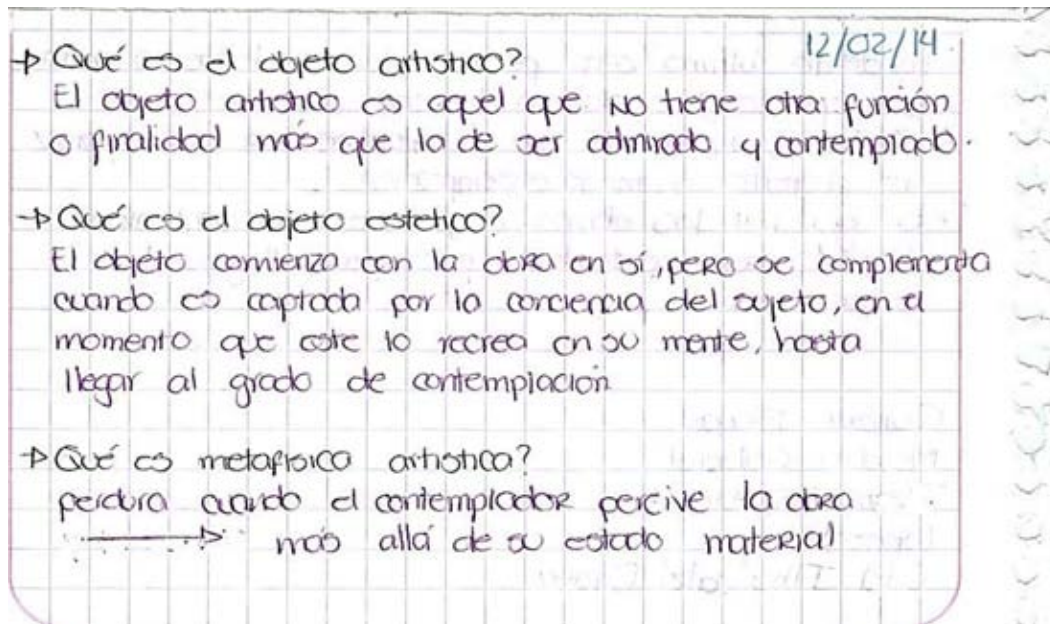 12/02/14
→ Qué es el objeto artistico?
El objeto artistico es aquel que NO tiene otra función
o finalidad más que la de ser admirado y contemplado.
→ Qué es el objeto estetico?
El objeto comienza con la obra en sí, pero se complementa
cuando es captada por la conciencia del sujeto, en el
momento que este lo recrea en su mente, hasta
llegar al grado de contemplación
→ Qué es metafisica artistica?
perdura cuando el contemplador percive la obra
→ más allá de su estado material